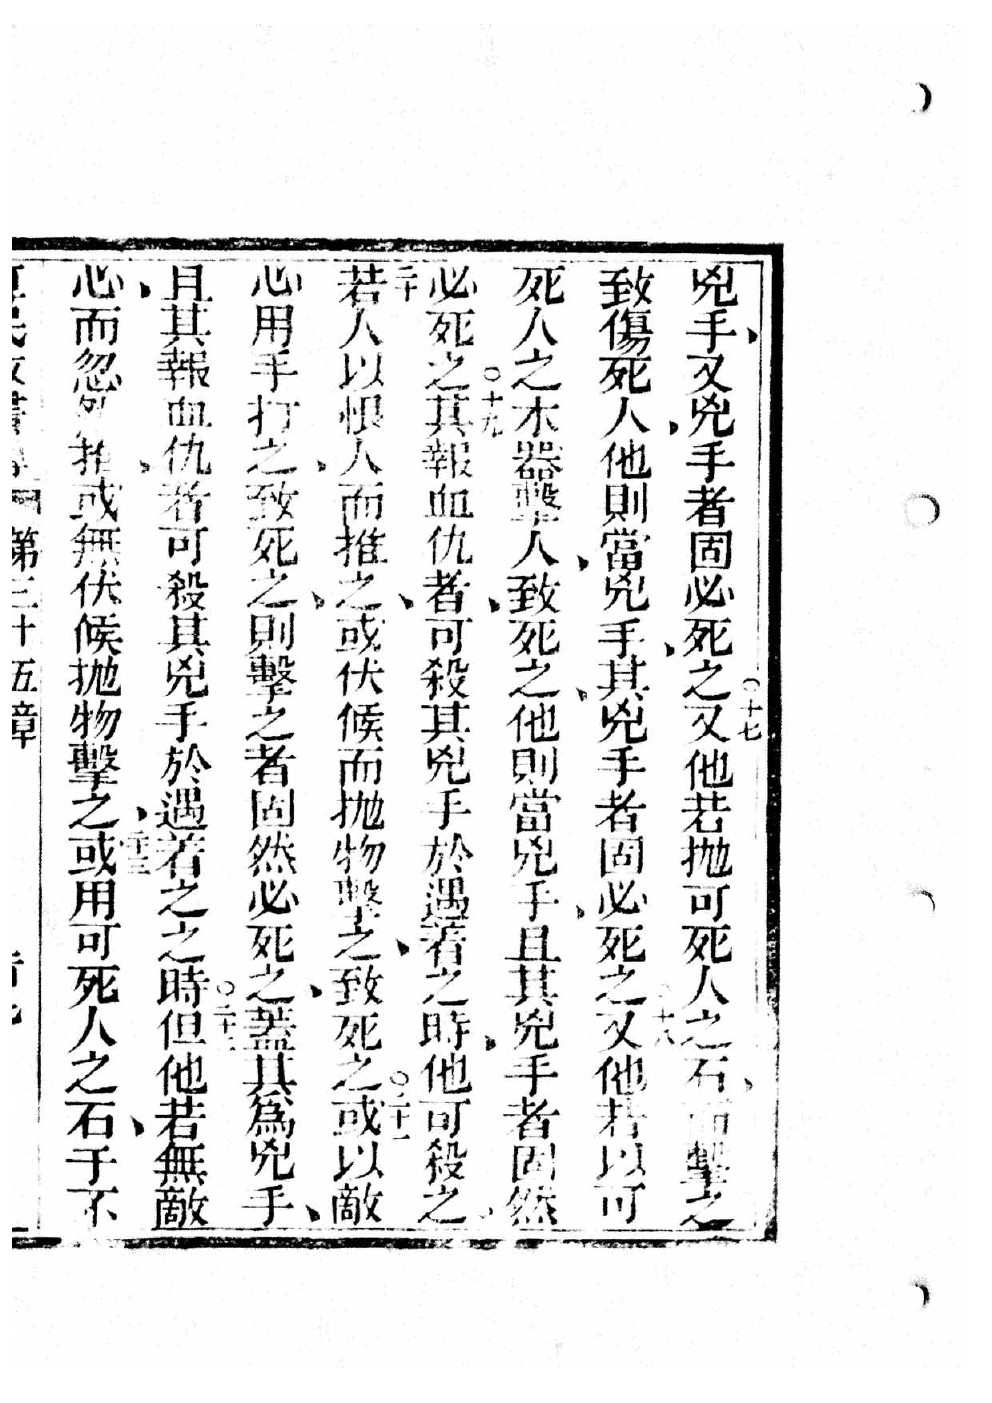 兇手、又兇手者固必死之又○十七他若拋可死人之石、而擊之
致傷死人、他則當兇手、其兇手者固必死之又○十八他若以可
死人之木器擊人、致死之、他則當兇手、且其兇手者固然
必死之○十九其報血仇者、可殺其兇手於遇着之時、他可殺之、
二十若人以恨人而推之、或伏候而拋物擊之、致死之○二十一或以敵
心用手打之、致死之、則擊之者固然必死之、蓋其為兇手、
且其報血仇者可殺其兇手於遇着之之時○二十二但他若無敵
心、而忽然推、或無伏候拋物擊之、二十三或用可死人之石、手不
第三十五章